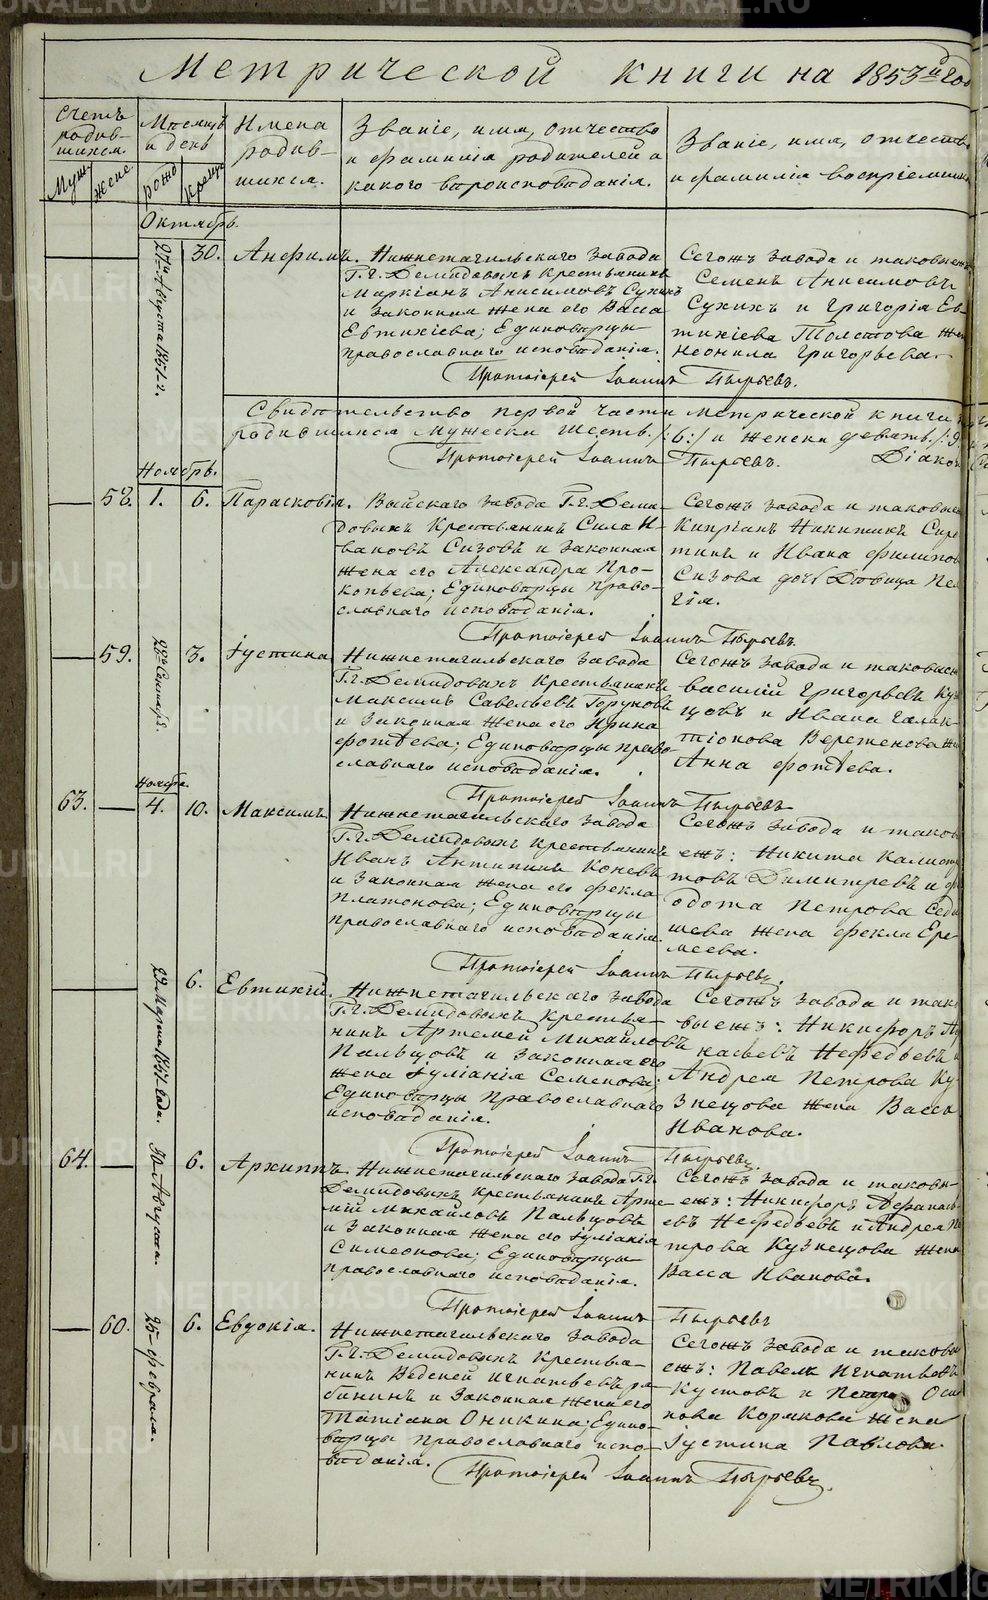 METRIKI.GASO-URAL.RU
Метрической книги на 1853й год
Счетъ родив-
шихся.
Муж.
Жене.
Месяцъ
и день
рожд
Крещ
Имена
родив-
шихся.
Званіе, имя, отчество
и фамилія родителей и
какого вѣроисповѣданія.
Званіе, имя, отчество
и фамилія воспріемник
Октябрь.
27го Августа 1851 г.
30.
Анфимъ.
Нижнетагильскаго завода
Г.г. Демидовыхъ крестьянинъ
Маркіанъ Анисимовъ Сухихъ
и законная жена его Васса
Евтихіева; Единоверцы
православнаго исповѣданія.
Сегожъ завода и таковыежъ
Семенъ Анисимовъ
Сухихъ и Григорія Ев-
тихіева Толстова жен
Неонила Григорьева.
Протоіерей Іоаннъ Пырьевъ.
Свидѣтельство первой части метрической книги
родившихся мужеска шесть /:6:/ и женска девять /:9
Протоіерей Іоаннъ Пырьевъ. Діакон
Ноябрь.
58.
1.
6.
Парасковія.
Выйскаго завода Г.г. Деми-
довыхъ крестьянинъ Сила И-
вановъ Сизовъ и законная
жена его Александра Про-
копьева; Единоверцы право-
славнаго исповѣданія.
Сегожъ завода и таковые
Кипріанъ Никитинъ Сиро
тинъ и Ивана Филипов
Сизова дочь Дѣвица Пела
гія.
Протоіерей Іоаннъ Пырьевъ.
59.
28го Сентября.
3.
Іустина
Нижнетагильскаго завода
Г.г. Демидовыхъ крестьянинъ
Максимъ Савельевъ Горуновъ
и законная жена его Ирина
Фотѣева; Единоверцы право-
славнаго исповѣданія.
Сегожъ завода и таковыеж
Василій Григорьевъ Куз
цовъ и Ивана Галак-
тіонова Веретенова же
Анна Фотѣева.
Протоіерей Іоаннъ Пырьевъ
Ноября.
63.
4.
10.
Максимъ
Нижнетагильскаго завода
Г.г. Демидовыхъ крестьянинъ
Иванъ Антипинъ Коневъ
и законная жена его Фекла
Платонова; Единоверцы
православнаго исповѣданія.
Сегожъ завода и таков
ежъ: Никита Калист
товъ Димитревъ и Ф
одота Петрова Седы
шева жена Фекла Ере-
меева.
Протоіерей Іоаннъ Пырьевъ.
29 Марта 1851 года.
6.
Евтихій.
Нижнетагильскаго завода
Г.г. Демидовыхъ крестья-
нинъ Артемей Михайловъ
Пальцовъ и законная его
жена Іуліанія Семенова;
Единоверцы православнаго
исповѣданія.
Сегожъ завода и так
выежъ: Никифоръ Аф
насьевъ Нефедьевъ и
Андрея Петрова Ку-
знецова жена Васса
Иванова.
Протоіерей Іоаннъ Пырьевъ.
64.
30 Августа.
6.
Архиппъ.
Нижнетагильскаго завода Г.г.
Демидовыхъ крестьянинъ Арте-
мій Михайловъ Пальцовъ
и законная жена его Іуліанія
Симеонова; Единоверцы
православнаго исповѣданія.
Сегожъ завода и таковы-
ежъ: Никифоръ Афанась-
евъ Нефедьевъ и Андрея Пе
трова Кузнецова жена
Васса Иванова.
Протоіерей Іоаннъ Пырьевъ
60.
25 февраля.
6.
Евдокія.
Нижнетагильскаго завода
Г.г. Демидовыхъ крестья-
нинъ Веденей Игнатьевъ ря-
бининъ и законная жена его
Татіана Оникина; Едино-
верцы православнаго испо-
вѣданія.
Сегожъ завода и таковы
ежъ: Павелъ Игнатьевъ
Кустовъ и Петра Оси
пова Кормкова жена
Іустина Павлова.
Протоіерей Іоаннъ Пырьевъ.